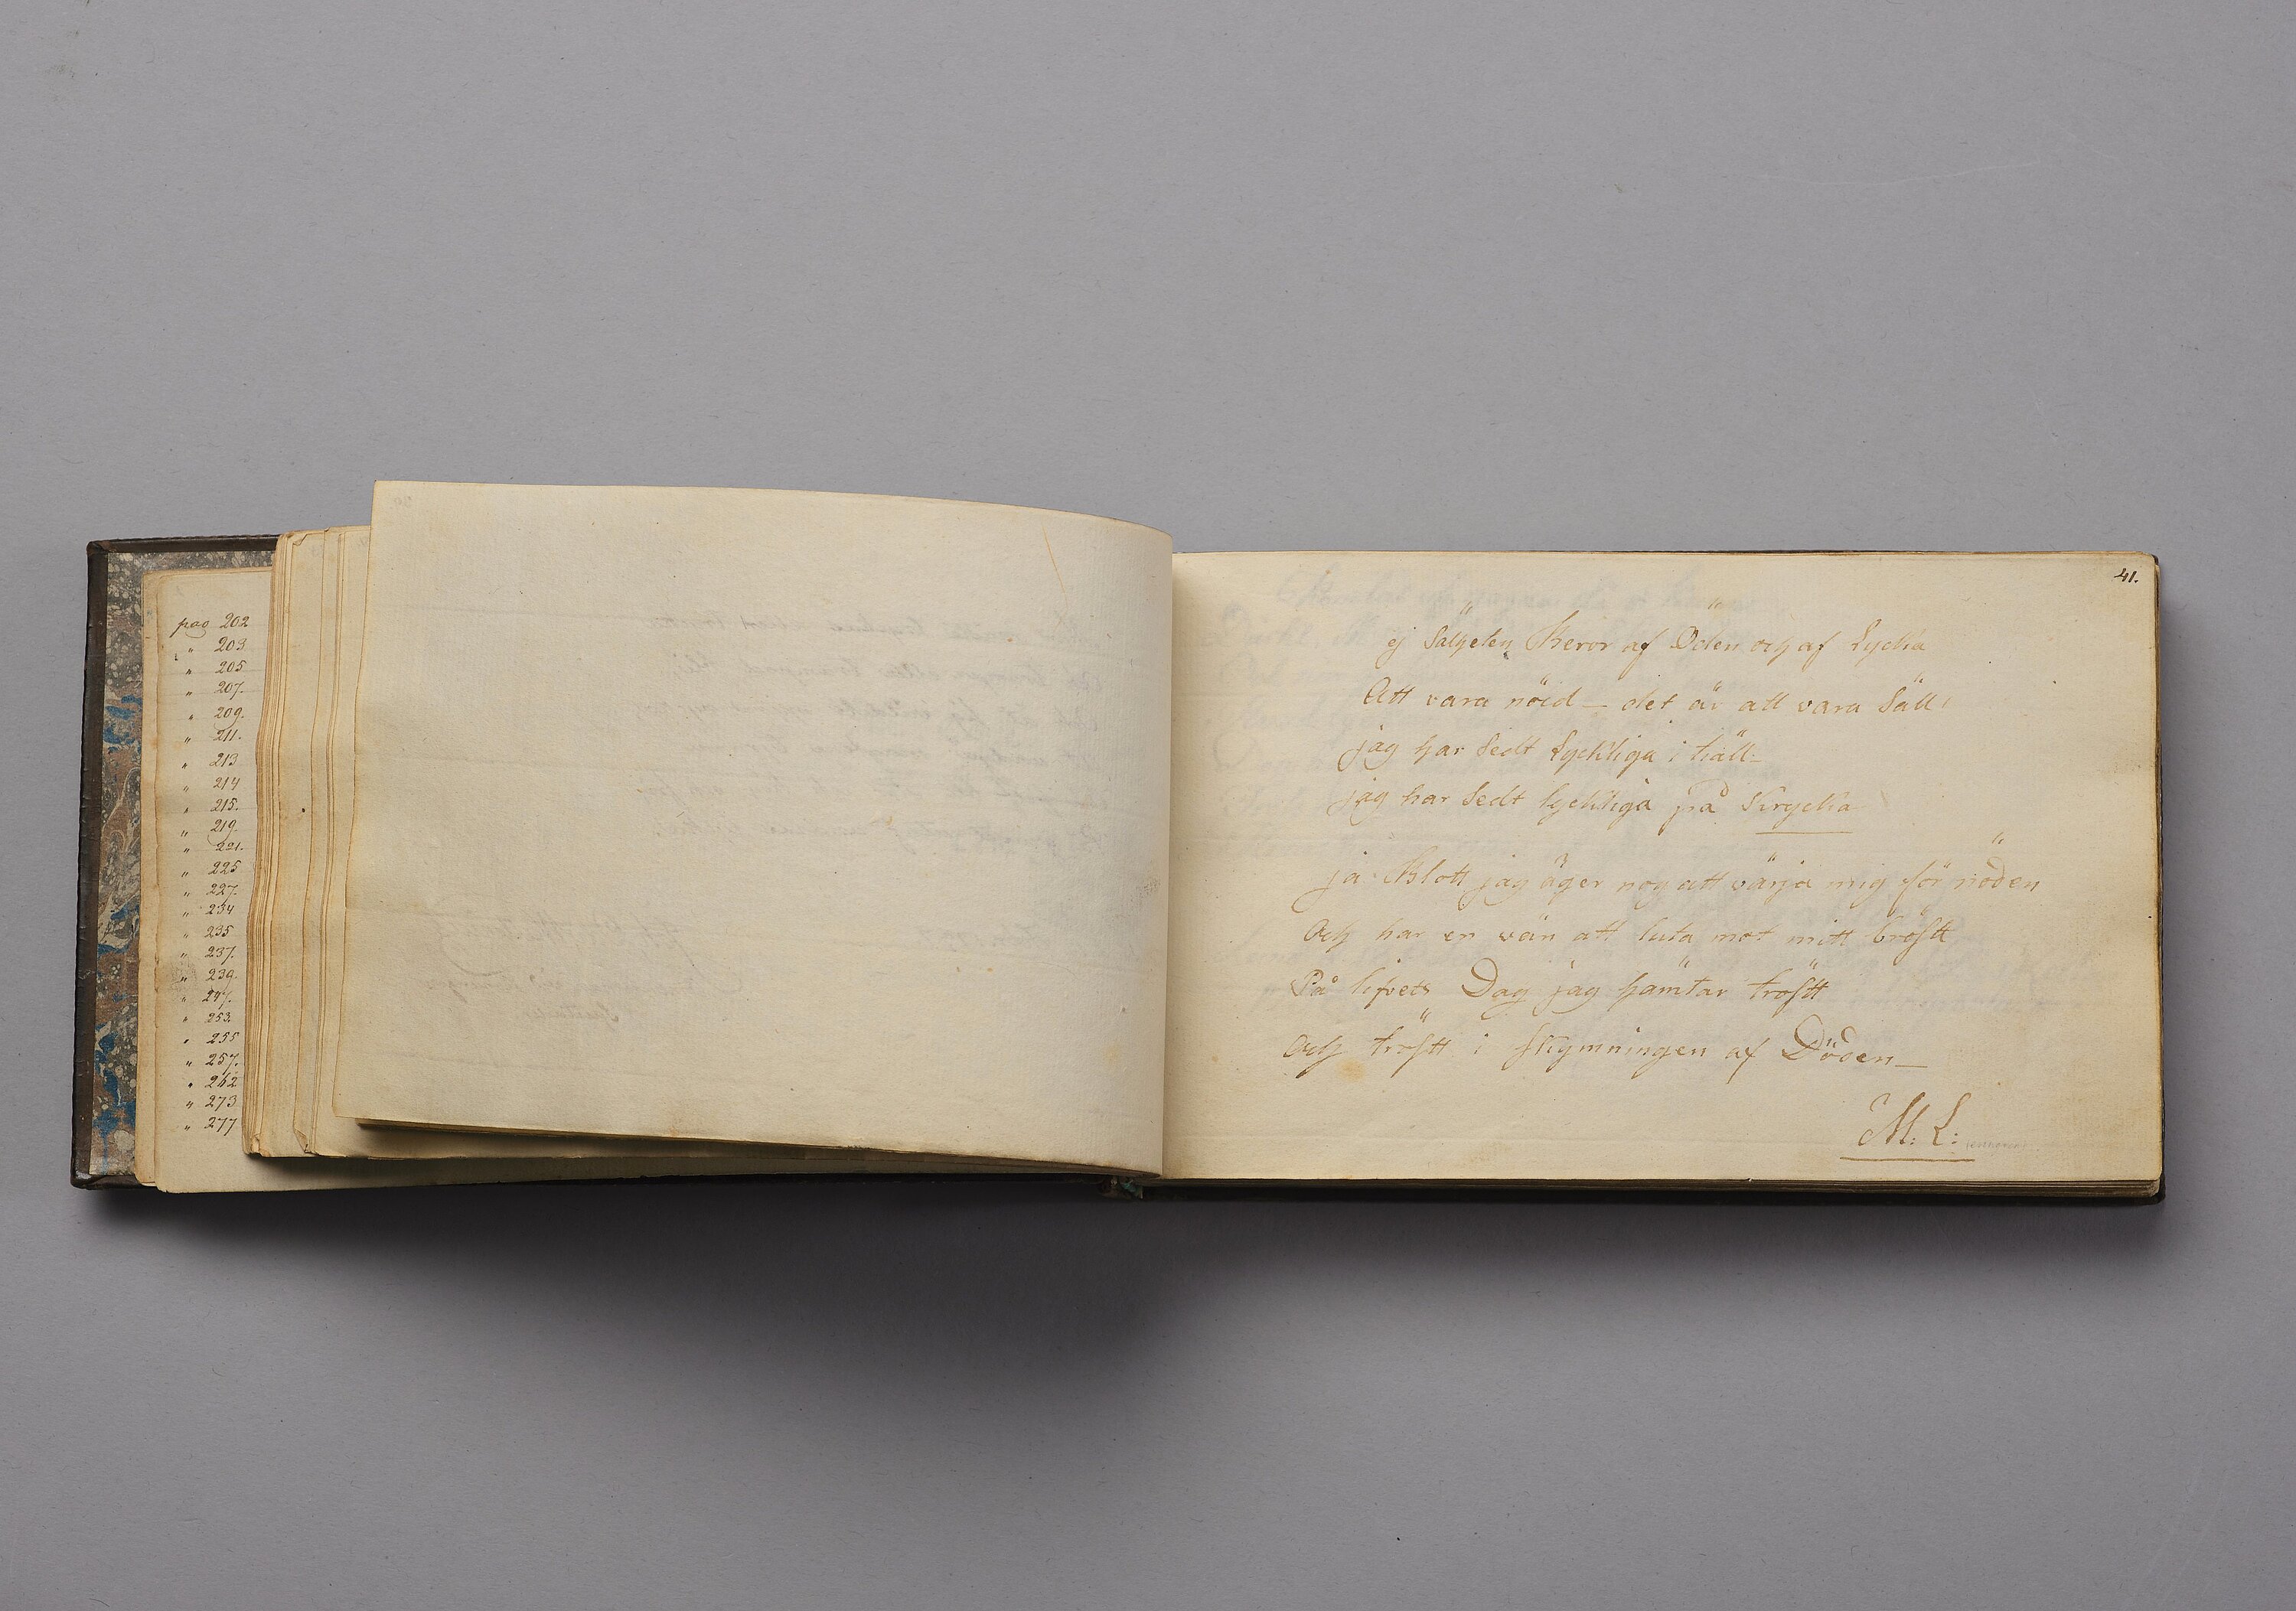 pag 202
" 203
" 205
" 207.
" 209.
" 211.
" 213
" 214
" 215.
" 219.
" 221.
" 225
" 227.
" 234
" 235
" 237.
" 239.
" 247.
" 253.
" 255
" 257.
" 262
" 273
" 277
41.
ej Sälheten Beror af Öden och af Lycka
Att vara nöid – det är att vara Säll:
jag har Sedt Lyckliga i tiäll:
jag har Sedt lyckliga på Krycka
ja Blott jag äger nog att värja mig för nöden
Och har en vän att luta mot mitt bröstt
På lifvets Dag jag hämtar tröstt
och tröstt i skymningen af Döden –
M: L: